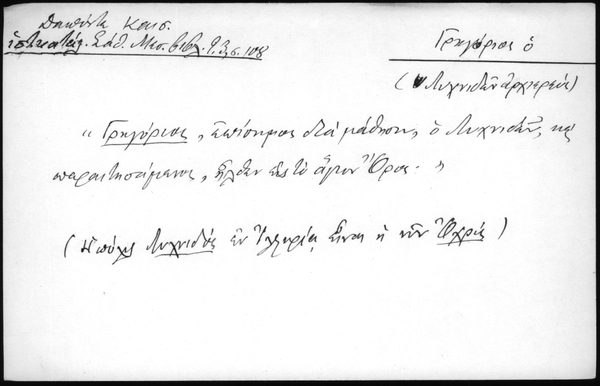 Δαπόντε Καισ.
ἱστ. κατάλ. Σάθ. Μεσ. βιβλ. Γ. σ. 108
Γρηγόριος ὁ
(Λυχνιδῶν ἀρχιερεύς)
« Γρηγόριος, ἐπίσημος διὰ μάθησιν, ὁ Λυχνιδῶν, καὶ
παραιτησάμενος, ἦλθεν εἰς τὸ ἅγιον Ὄρος. »
(Ἡ πόλις Λυχνιδός ἐν Ἰλλυρίᾳ εἶναι ἡ νῦν Ὀχρίς)